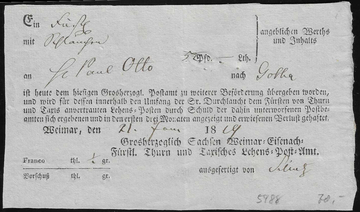 Ein
mit Schlaufen angeblichen Werths
und Inhalts
Pfd. Lth.
an St Paul Otto nach Gotha
ist heute dem hiesigen Grosherzogl. Postamt zu weiterer Beförderung übergeben worden,
und wird für dessen innerhalb den Umfang der Sr. Durchlaucht dem Fürsten von Thurn
und Taxis anvertrauten Lehens-Posten durch Schuld der dahin unterworfenen Postbe-
amten sich ergebenden und in den ersten drei Monaten angezeigt und erwiesenen Verlust gehaftet.
Weimar, den 21. Juni 1819
Grosherzoglich Sachsen Weimar-Eisenach-
Fürstl. Thurn und Taxisches Lehens-Post-Amt.
Franco thl. gr.
Vorschuß thl. gr. ausgefertigt von
5988 70,-